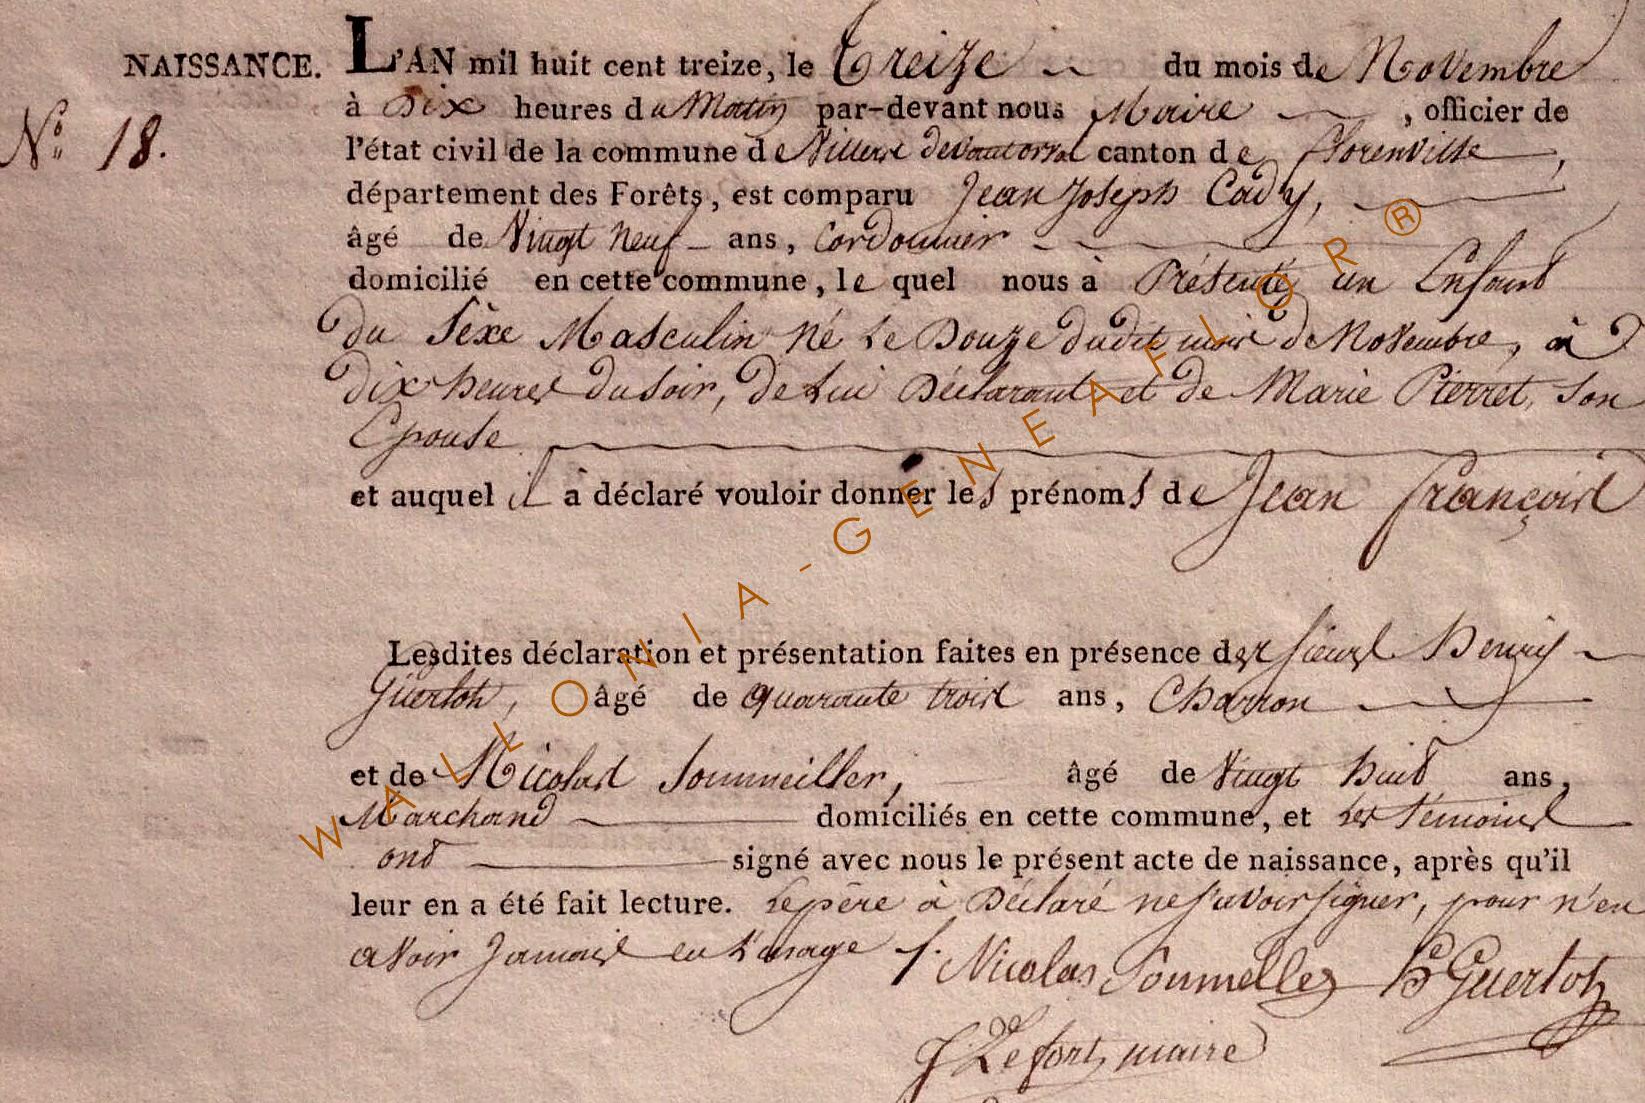 NAISSANCE. L'AN mil huit cent treize, le Treize du mois de Novembre
N.° 18.
à Dix heures du Matin par-devant nous Maire , officier de
l'état civil de la commune de Villers devant orval canton de florenville,
département des Forêts, est comparu Jean Joseph Cady,
âgé de Vingt Neuf ans, Cordonnier
domicilié en cette commune, le quel nous à Présenté un Enfant
du Sèxe Masculin Né Le Douze dudit mois de Novembre, à
dix heures du soir, de Lui Déclarant et de Marie Pierret, Son
Epouse
et auquel il a déclaré vouloir donner les prénoms de Jean françois
Lesdites déclaration et présentation faites en présence des sieurs Henry
Guerlot, âgé de quarante trois ans, Charron
et de Nicolas Sommeiller, âgé de Vingt huit ans,
Marchand domiciliés en cette commune, et Les Témoins
ont signé avec nous le présent acte de naissance, après qu'il
leur en a été fait lecture. Le père à Déclaré ne savoir signer, pour n'en
avoir Jamais eu L'usage /.
Nicolas Soumelles H Guerlot
J Lefort, maire
WALLONIA-GENEAFLOR ®